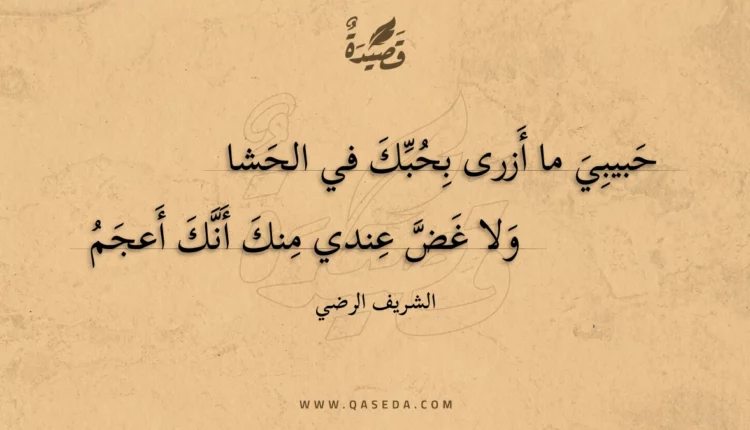 قَصِيْدَةٌ
حَبيبِيَ ما أَزرى بِحُبِّكَ في الحَشا
وَلا غَضَّ عِندي مِنكَ أَنَّكَ أَعجَمُ
الشريف الرضي
WWW.QASEDA.COM